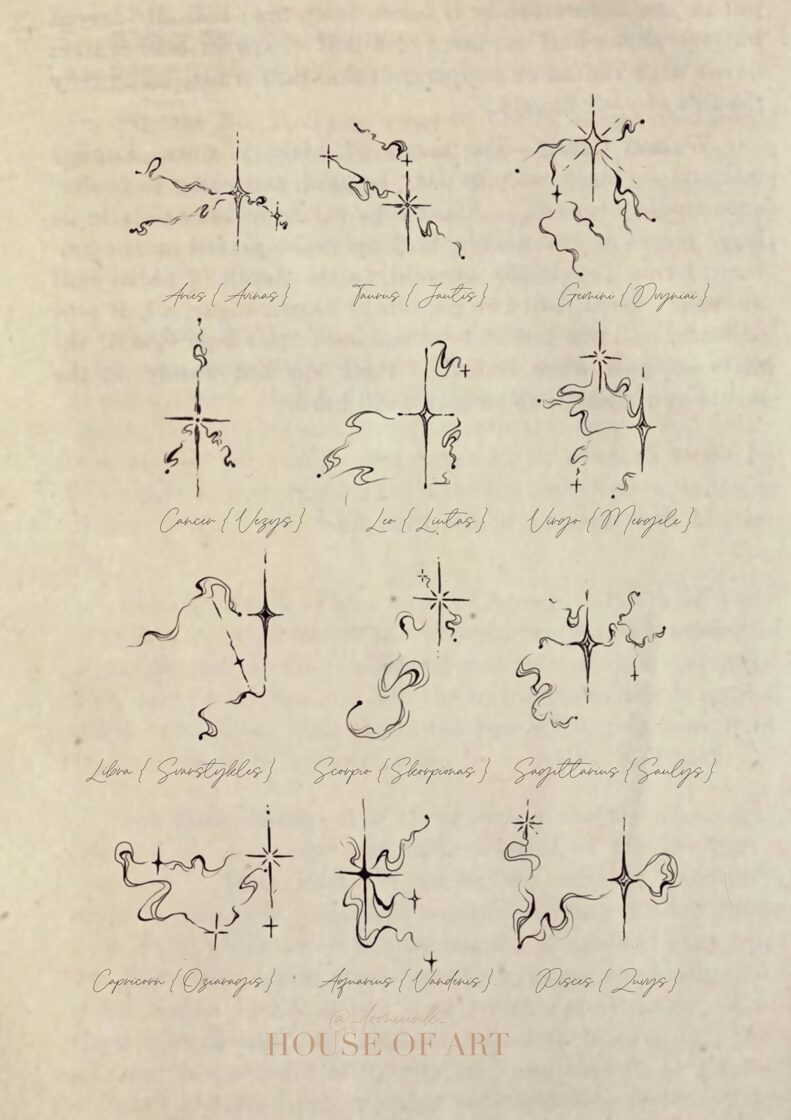 Aries { Avinas } Taurus { Jautis } Gemini { Dvyniai }
Cancer { Vezys } Leo { Liutas } Virgo { Mergele }
Libra { Svarstykles } Scorpio { Skorpionas } Sagittarius { Saulys }
Capricorn { Oziaragis } Aquarius { Vandenis } Pisces { Zuvys }
@_domiink_
HOUSE OF ART